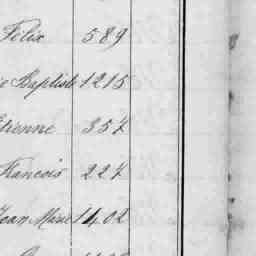 Félix 589
Baptiste 1215
Etienne 357
Francois 227
Jean Marie 1402